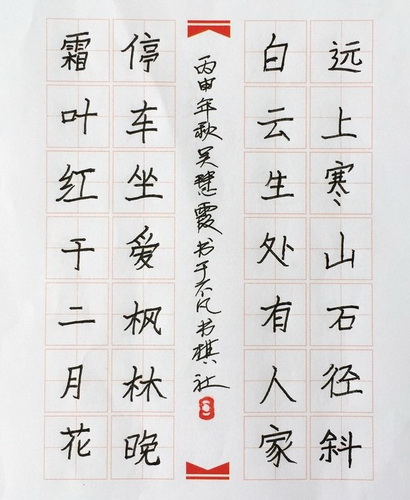 远上寒山石径斜
白云生处有人家
丙申年秋吴慧霞书于不凡书棋社
停车坐爱枫林晚
霜叶红于二月花